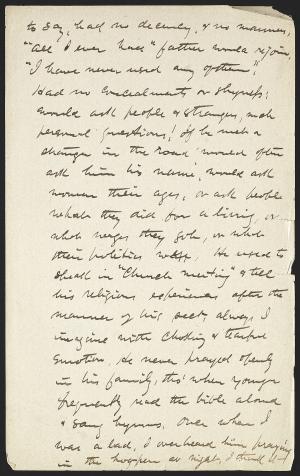 to say, had no decency, & no manners,
"All I ever had" father would rejoin,
"I have never used any of them!"
Had no concealments or shyness;
would ask people & strangers, such
personal questions! If he met a
stranger in the road would often
ask him his name, would ask
women their ages, or ask people
what they did for a living, or
what wages they got, or what
their politics were. He used to
speak in "Church meeting" & tell
his religious experiences after the
manner of his sect, always, I
imagine with choking & tearful
emotion. He never prayed openly
in his family, tho' when younger
frequently read the bible aloud
& sang hymns. Once when I
was a lad, I overheard him praying
in the hogpen at night, I think it